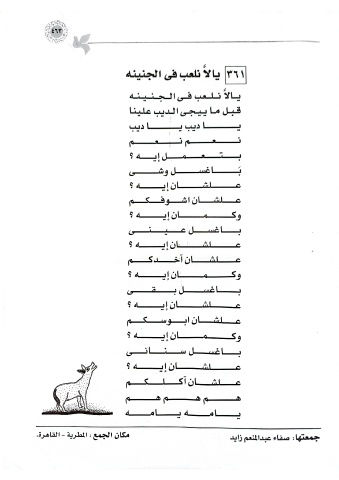 ٤٦٣
٣٦١ يالاَّ نلعب فى الجنينه
يالاَّ نلعب فى الجنينه
قبل ما ييجى الديب علينا
يا ديب يا ديب
نعم نعم
بتعمل إيه ؟
بَاغسل وشى
علشان إيه ؟
علشان اشوفكم
وكمان إيه ؟
باغسل عينى
علشان إيه ؟
علشان أخدكم
وكمان إيه ؟
باغسل بقى
علشان إيه ؟
علشان ابوسكم
وكمان إيه ؟
باغسل سنانى
علشان إيه ؟
علشان أكلكم
هم هم هم
يامه يامه
جمعتها : صفاء عبدالمنعم زايد
مكان الجمع : المطرية - القاهرة.